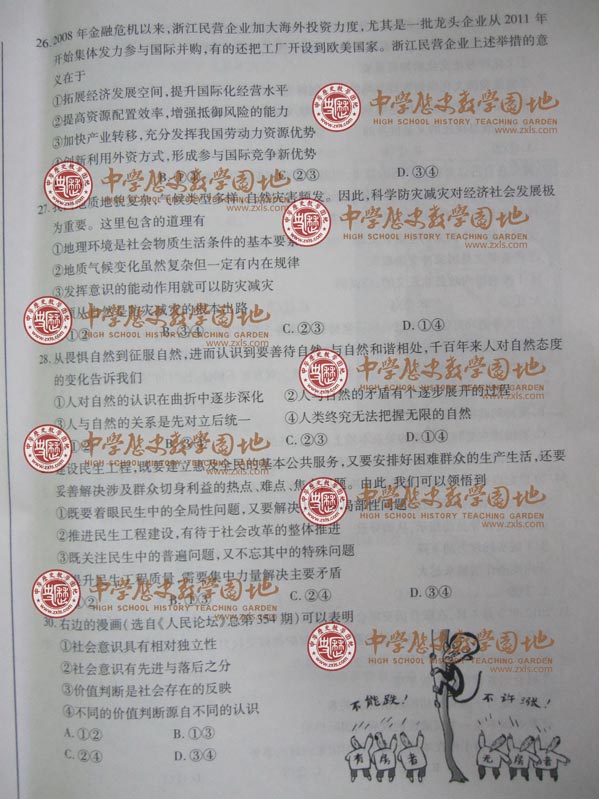 26.2008年金融危机以来,浙江民营企业加大海外投资力度,尤其是一批龙头企业从2011年
开始集体发力参与国际并购,有的还把工厂开设到欧美国家。浙江民营企业上述举措的意
义在于
①拓展经济发展空间,提升国际化经营水平
②提高资源配置效率,增强抵御风险的能力
③加快产业转移,充分发挥我国劳动力资源优势
④创新利用外资方式,形成参与国际竞争新优势
②③ D.③④
27. 地貌复杂,气候类型多样,自然灾害频发。因此,科学防灾减灾对经济社会发展极
为重要。这里包含的道理有
①地理环境是社会物质生活条件的基本要素
②地质气候变化虽然复杂但一定有内在规律
③发挥意识的能动作用就可以防灾减灾
自然是防灾减灾的根本出路
①② B.③④ C.②③ D.①④
28.从提惧自然到征服自然,进而认识到要善待自然,与自然和谐相处,千百年来人对自然态度
的变化告诉我们
①人对自然的认识在曲折中逐步深化 ②人与自然的矛盾有个逐步展开的过程
③人与自然的关系是先对立后统一 ④人类终究无法把握无限的自然
C.②③ D.①④
建设民生工程,既要建立惠及全民的基本公共服务,又要安排好困难群众的生产生活,还要
妥善解决涉及群众切身利益的热点、难点、焦点问题。由此,我们可以领悟到
①既要着眼民生中的全局性问题,又要解决 局部性问题
②推进民生工程建设,有待于社会改革的整体推进
③既关注民生中的普遍问题,又不忘其中的特殊问题
提升民生工程质量,需要集中力量解决主要矛盾
C.②④ D.③④
30.右边的漫画(选自《人民论坛》总第354期)可以表明
①社会意识具有相对独立性
②社会意识有先进与落后之分
③价值判断是社会存在的反映
④不同的价值判断源自不同的认识
A.①② B.①③
C.②④ D.③④
不能跌!
不许涨!
有房者
无房者
中学历史教学园地
HIGH SCHOOL HISTORY TEACHING GARDEN
www.zxls.com